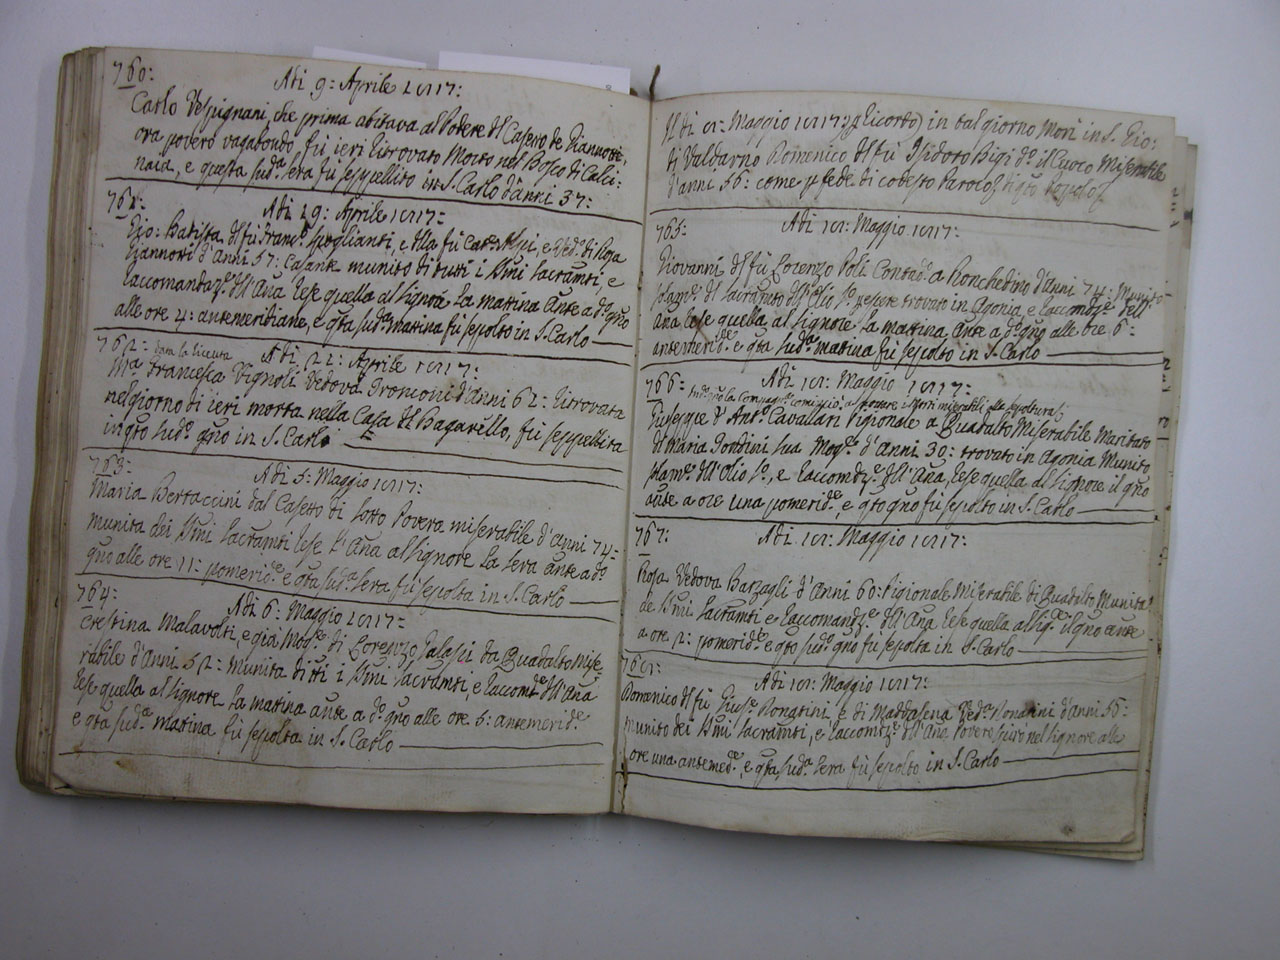 760:
Adi 9: Aprile 1817:
Carlo Vespignani, che prima abitava al Podere del Casetto de Giannotti,
ora povero vagabondo fù ieri ritrovato Morto nel Bosco di Calci:
naia, e questa sud.ª sera fù seppellito in S. Carlo d'anni 37:
761:
Adi 19: Aprile 1817:
Gio: Batista del fù Franc.º Spoglianti, e della fù Cat.ª e Ved.º di Rosa
Giannotti d'anni 57: Casante munito di tutti i SSmi Sacramti, e
raccomandaz.e dell'Ana rese quella al Signore la mattina ante a d.º gno
alle ore 4: antemeridiane, e qta sud.ª mattina fù sepolto in S. Carlo
762: data la licenza
Adi 22: Aprile 1817:
M.ª Francesca Vignoli Vedova Tronconi d'anni 62: ritrovata
nel giorno di ieri morta nella Casa del Bagarillo, fù seppellita
in qto sud.º gno in S. Carlo
763:
Adi 5: Maggio 1817:
Maria Bertaccini dal Casetto di sotto Povera miserabile d'anni 74:
munita dei SSmi Sacramti rese l'Ana al Signore la sera ante a d.º
gno alle ore 11: pomerid.e e qta sud.ª sera fù sepolta in S. Carlo
764:
Adi 6: Maggio 1817:
Crestina Malavolti, e già Mog.e di Lorenzo Salassi da Quadalto Mise:
rabile d'Anni 52: munita di tti i SSmi Sacramti, e raccomd.e dell'Ana
rese quella al Signore la mattina ante a d.º gno alle ore 5: antemerid.e
e qta sud.ª mattina fù sepolta in S. Carlo
Il di 8: Maggio 1817: (p Ricordo) in tal giorno Morì in S. Gio:
di Valdarno Domenico del fù Isidoro Bigi d.º il Cuoco Miserabile
d'anni 56: come p fede di codesto Paroco
765:
Adi 18: Maggio 1817:
Giovanni del fù Lorenzo Poli Contad.º a Ronchedino d'Anni 74: Munito
solam.e del Sacramto dell'Olio S.º p essere trovato in Agonia, e raccomdz.e dell'
Ana rese quella al Signore la mattina ante a d.º gno alle ore 6:
antemerid.e e qta sud.ª mattina fù sepolto in S. Carlo
766:
Adi 18: Maggio 1817:
la Compag.ª cominciò a portare i Morti miserabili alla sepoltura
Giuseppe d'Ant.º Cavallari Pigionale a Quadalto Miserabile Maritato
di Maria Poddini sua Mog.e d'Anni 30: trovato in Agonia Munito
solam.e dell'Olio S.º, e raccomdz.e dell'Ana, rese quella al Signore il gno
ante a ore una pomerid.e, e qto gno fù sepolto in S. Carlo
767:
Adi 18: Maggio 1817:
Rosa Vedova Barzagli d'Anni 60: Pigionale Miserabile di Quadalto Munita
de SSmi Sacramti e raccomandz.e dell'Ana rese quella al Sig.e il gno ante
a ore 2: pomerid.e e qto sud.º gno fù sepolta in S. Carlo
768:
Adi 18: Maggio 1817:
Domenico del fù Gius.e Ronatini e di Maddalena Ved.ª Ronatini d'anni 56:
munito dei SSmi Sacramti, e raccomdz.e dell'Ana Povere spirò nel Signore alle
ore una antemed.e, e qta sud.ª sera fù sepolto in S. Carlo